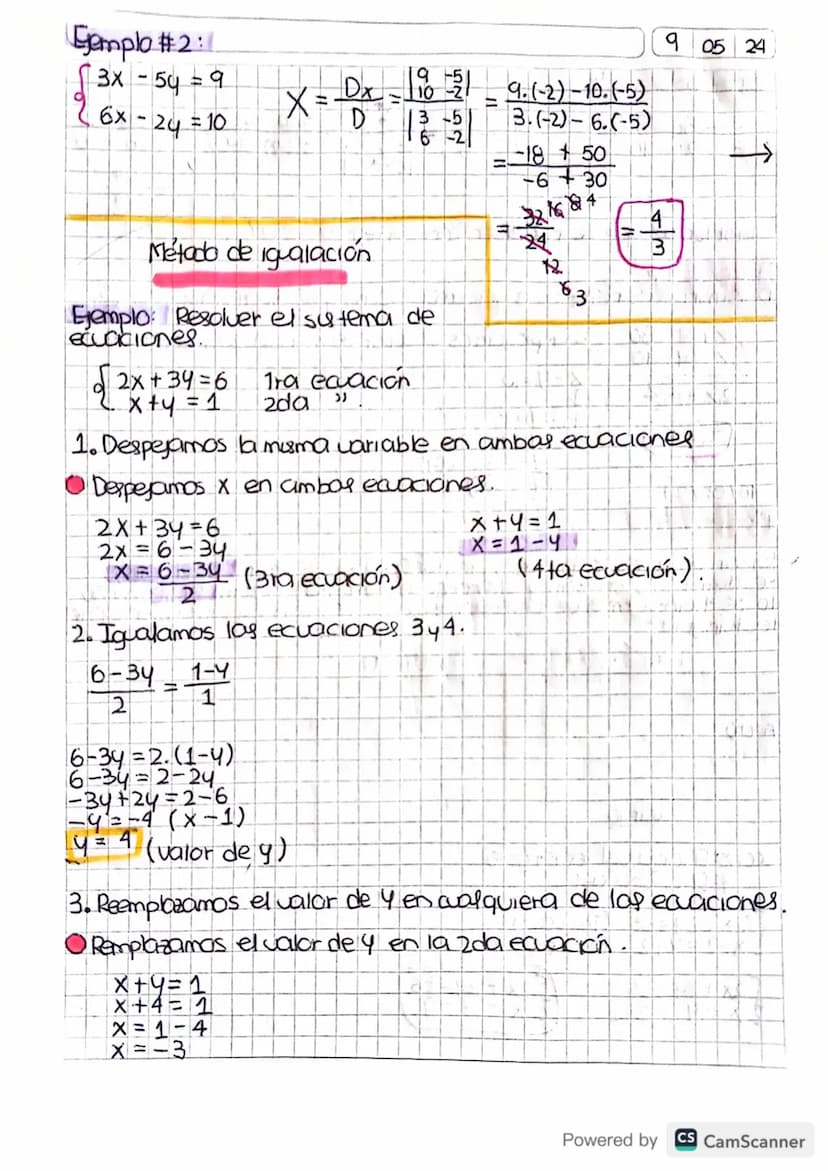 Ejemplo #2:
9 05 24
3x - 5y = 9
6x - 2y = 10
X = Dx/D = |9 -5| |10 -2| / |3 -5| |6 -2| = 9.(-2) - 10.(-5) / 3.(-2) - 6.(-5)
= -18 + 50 / -6 + 30 →
= 32 16 8 4 / 24 12 6 3 = 4/3
Método de igualación
Ejemplo: Resolver el sistema de
ecuaciones.
2x + 3y = 6 1ra ecuación
x + y = 1 2da ".
1. Despejamos la misma variable en ambas ecuaciones
Despejamos x en ambas ecuaciones.
2x + 3y = 6
2x = 6 - 3y
x = 6 - 3y / 2 (3ra ecuación)
x + y = 1
x = 1 - y
(4ta ecuación).
2. Igualamos las ecuaciones 3 y 4.
6 - 3y / 2 = 1 - y / 1
6 - 3y = 2.(1 - y)
6 - 3y = 2 - 2y
-3y + 2y = 2 - 6
-y = -4 (x - 1)
y = 4 (valor de y)
3. Reemplazamos el valor de y en cualquiera de las ecuaciones.
Remplazamos el valor de y en la 2da ecuación.
x + y = 1
x + 4 = 1
x = 1 - 4
x = -3
Powered by CS CamScanner